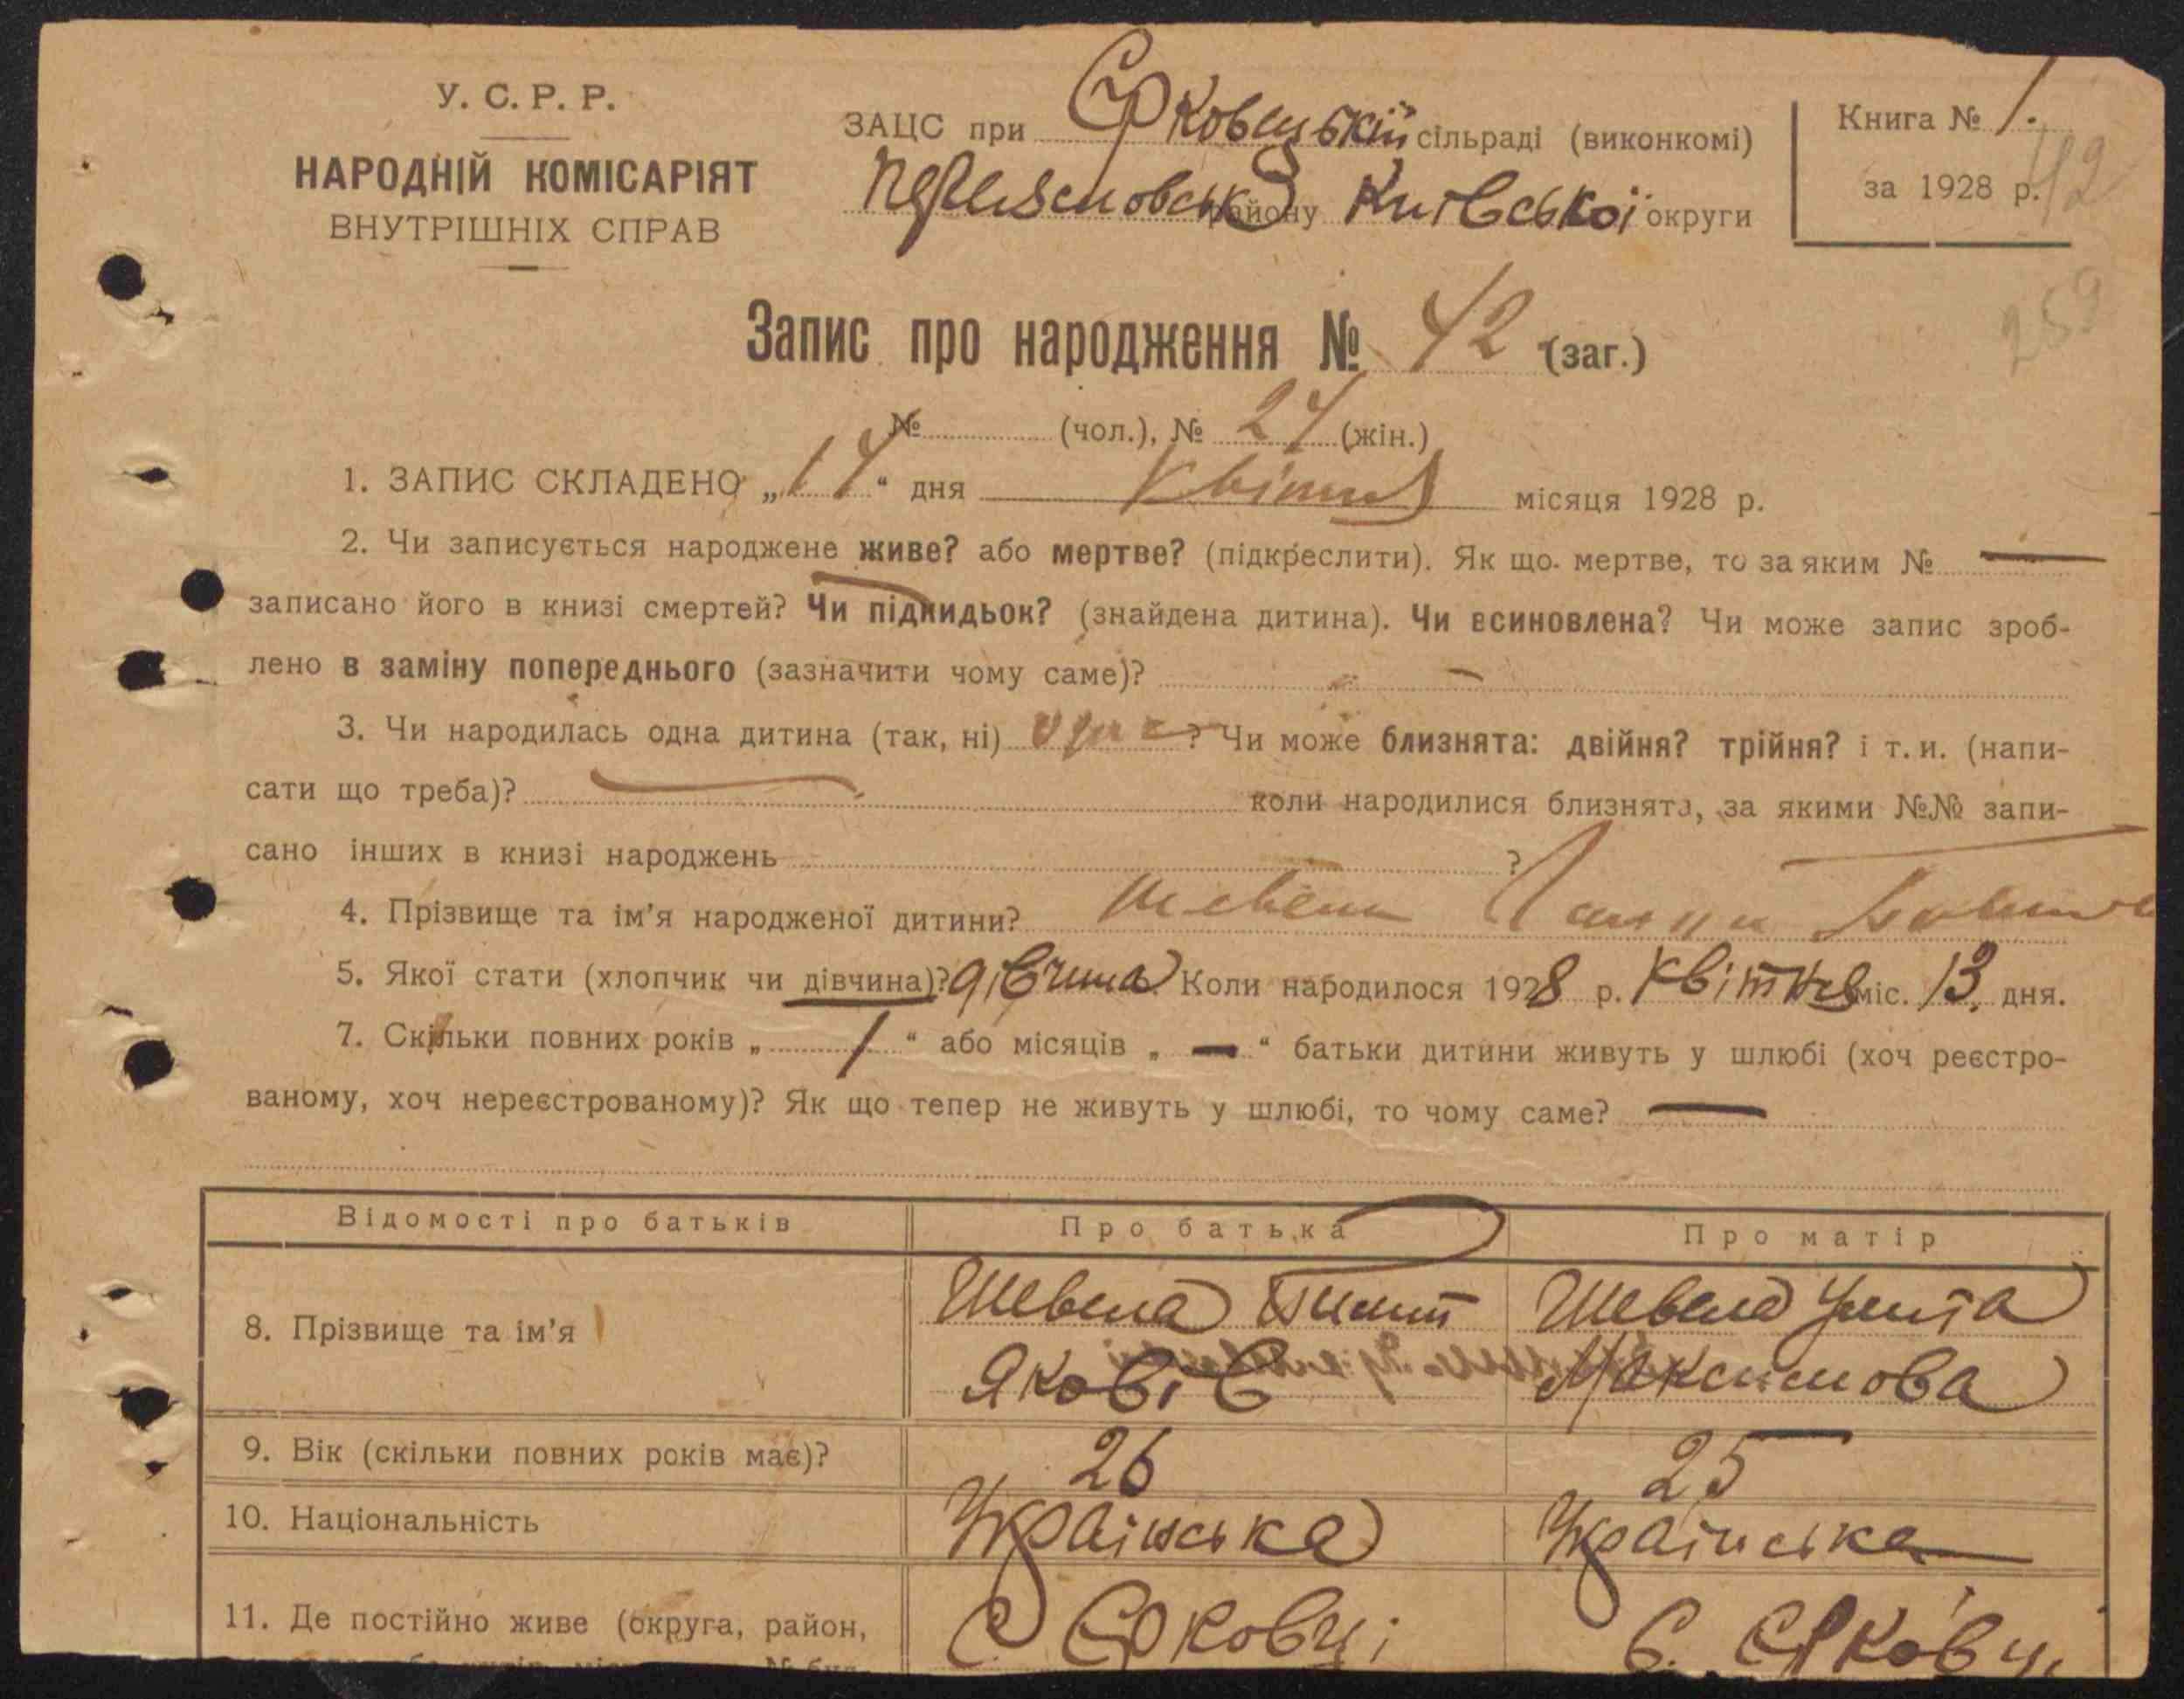 У. С. Р. Р.
НАРОДНІЙ КОМІСАРІЯТ
ВНУТРІШНІХ СПРАВ
ЗАЦС при Єрковецькій сільраді (виконкомі)
району Київської округи
Книга № 1.
за 1928 р.
42
259
Запис про народження № 42 (заг.)
№ (чол.), № 24 (жін.)
1. ЗАПИС СКЛАДЕНО „14“ дня Квітня місяця 1928 р.
2. Чи записується народжене живе? або мертве? (підкреслити). Як що мертве, то за яким № —
записано його в книзі смертей? Чи підкидьок? (знайдена дитина). Чи всиновлена? Чи може запис зроб-
лено в заміну попереднього (зазначити чому саме)? —
3. Чи народилась одна дитина (так, ні) одна? Чи може близнята: двійня? трійня? і т. и. (напи-
сати що треба)? — коли народилися близнята, за якими №№ запи-
сано інших в книзі народжень ?
4. Прізвище та ім’я народженої дитини? Шевела
5. Якої стати (хлопчик чи дівчина)? дівчина Коли народилося 1928 р. квітня міс. 13. дня.
7. Скільки повних років „ 1 “ або місяців „ — “ батьки дитини живуть у шлюбі (хоч реєстро-
ваному, хоч нереєстрованому)? Як що тепер не живуть у шлюбі, то чому саме? —
Відомості про батьків Про батька Про матір
8. Прізвище та ім’я Шевела Шевела
Яковів Максимова
9. Вік (скільки повних років має)? 26 25
10. Національність Українська Українська
11. Де постійно живе (округа, район, С Єрковці С. Єрковці